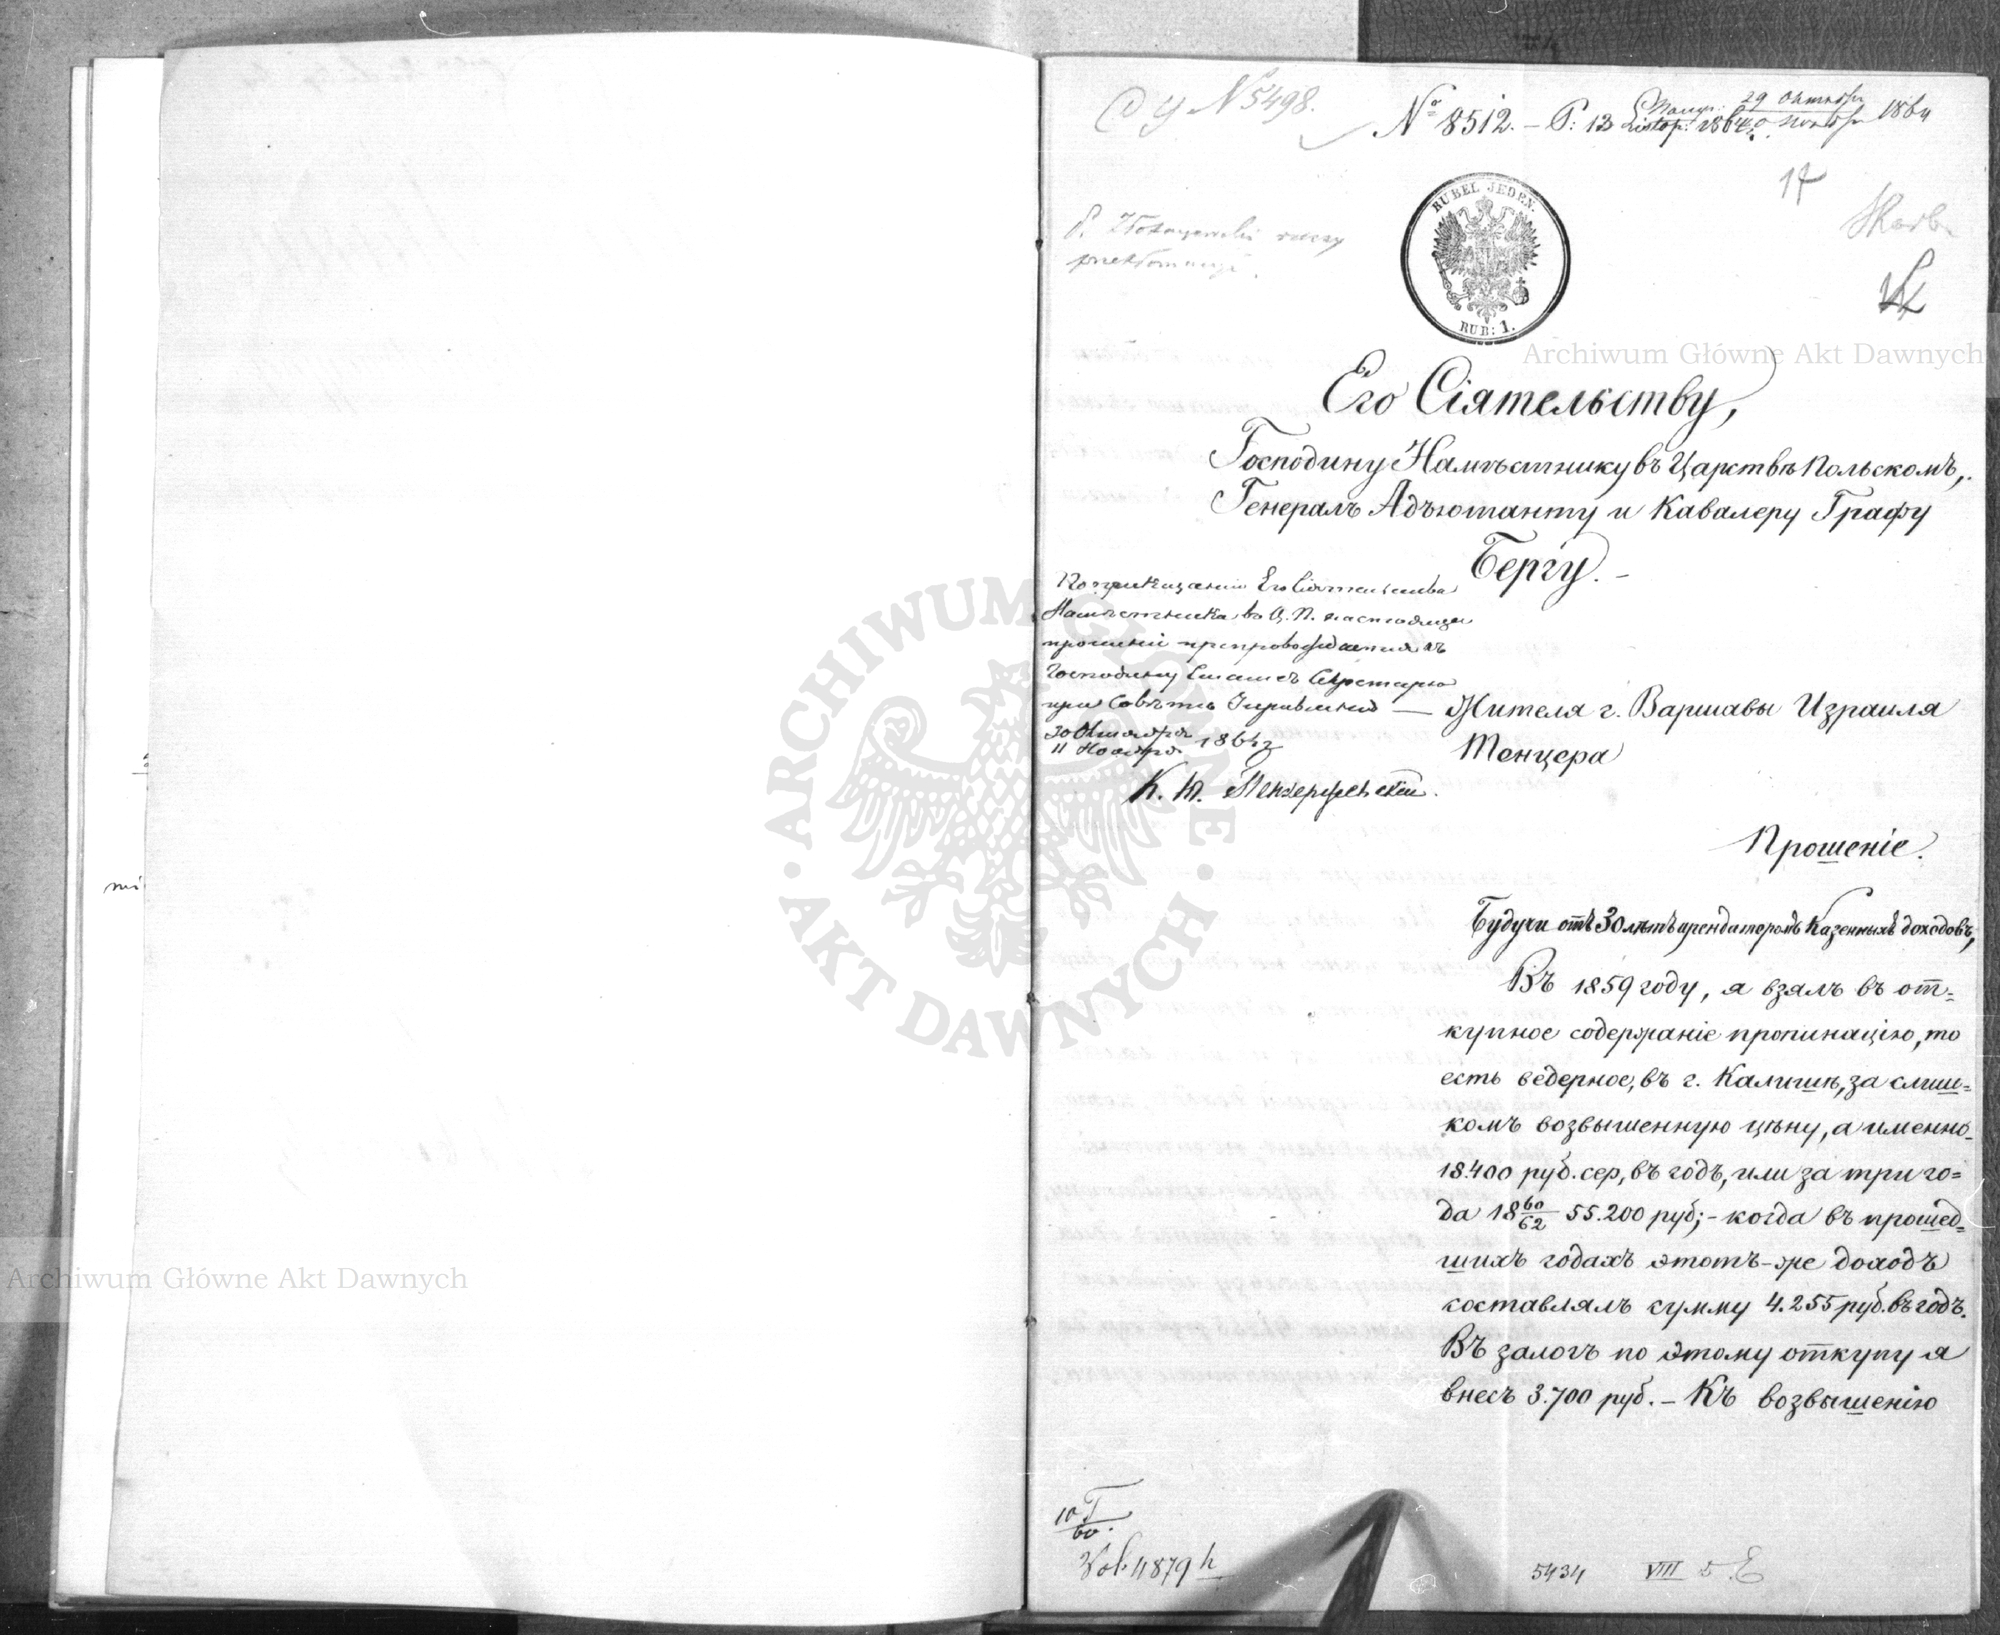 № 5498.
№ 8512. – P: 12 Listop: 1864.
29 1864
17
Skarb
RUBEL JEDEN.
RUB: 1.
Его Сіятельству,
Господину Намѣстнику въ Царствѣ Польскомъ,
Генералъ Адъютанту и Кавалеру Графу
Бергу. –
По приказанію Его Сіятельства
Намѣстника въ Ц. П. настоящее
прошеніе препровождается къ
Господину Статсъ Секретарю
при Совѣтѣ Управленія
30 Октября
11 Ноября 1864 г
К. Ю.
Жителя г. Варшавы Израиля
Тенцера
Прошеніе.
Будучи отъ 30 лѣтъ арендаторомъ Казенныхъ доходовъ,
Въ 1859 году, я взялъ въ от=
купное содержаніе пропинацію, то
есть ведерное, въ г. Калишѣ, за слиш=
комъ возвышенную цѣну, а именно
18.400 руб. сер, въ годъ, или за три го=
да 18 60/62 55.200 руб; – когда въ прошед=
шихъ годахъ этотъ-же доходъ
составлялъ сумму 4.255 руб. въ годъ.
Въ залогъ по этому откупу я
внесъ 3.700 руб. – Къ возвышенію
10 T
60.
Vol. 11879 h
5434 VIII 5. E
Archiwum Główne Akt Dawnych
Archiwum Główne Akt Dawnych
ARCHIWUM GŁÓWNE
AKT DAWNYCH